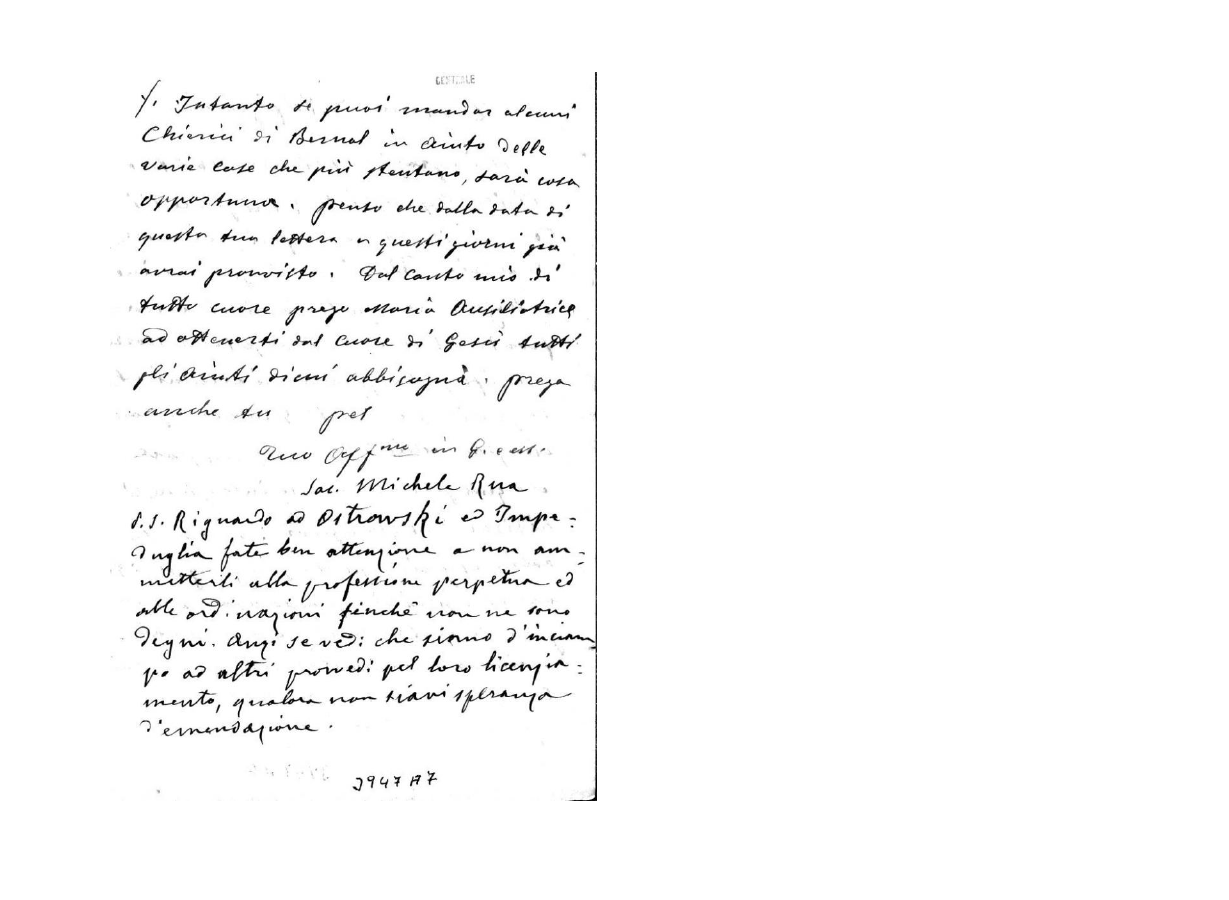 Intanto se puoi mandar alcuni
Chierici di Bernal in aiuto delle
varie case che più stentano, sarà cosa
opportuna. Penso che dalla data di
questa tua lettera a questi giorni già
avrai provvisto. Dal canto mio di
tutto cuore prego Maria Ausiliatrice
ad ottenerti dal Cuore di Gesù tutti
gli aiuti di cui abbisogna. Prega
anche tu pel
Tuo Aff.mo in G. e
Sac. Michele Rua
P.S. Riguardo ad Ostrowski ed Impe=
duglia fate ben attenzione a non am=
metterli alla professione perpetua ed
alle ordinazioni finchè non ne sono
degni. Anzi se vedi che siano d'inciam
po ad altri provvedi pel loro licenzia=
mento, qualora non siavi speranza
d'emendazione.
3947 A7